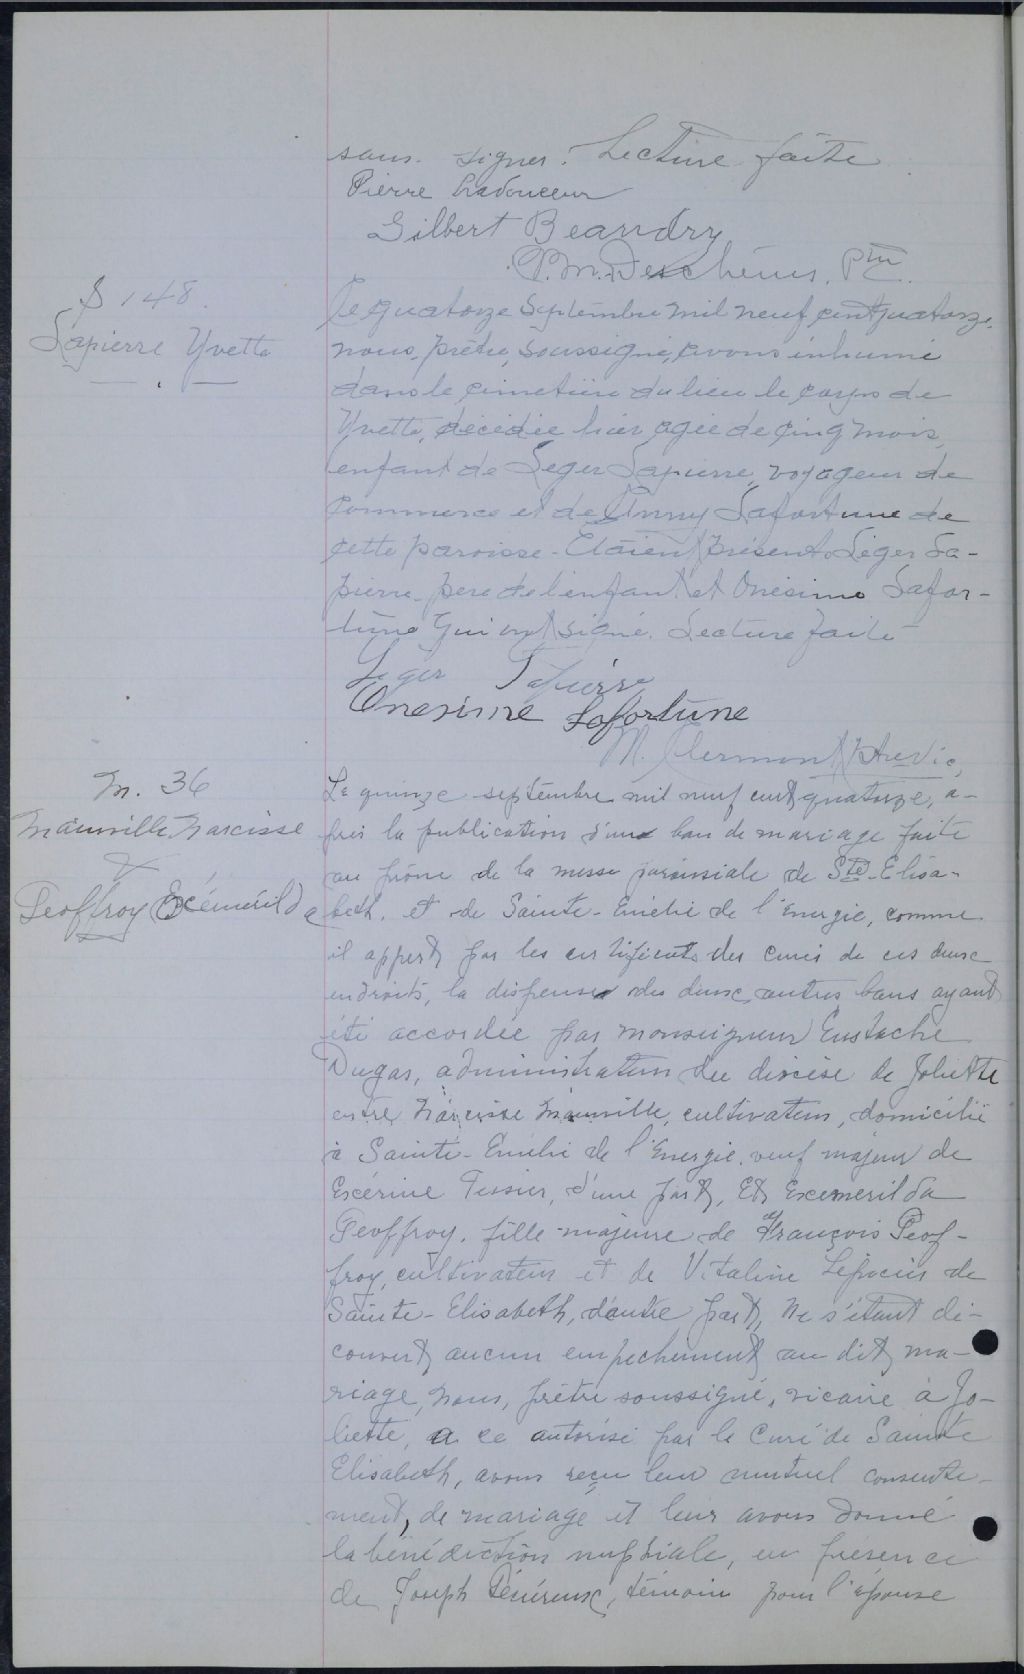 sans signer. Lecture faite
Pierre Ladouceur
Gilbert Beaudry
P.M. Deschênes. Ptre
S 148.
Lapierre Yvette
Le quatorze Septembre mil neuf cent quatorze,
nous, prêtre, soussigné, avons inhumé
dans le cimetière du lieu le corps de
Yvette, décédée hier agée de cinq mois,
enfant de Léger Lapierre, voyageur de
Commerce et de Anny Lafortune de
cette paroisse - Etaient présents Léger La-
pierre, père de l'enfant et Onésime Lafor-
tune qui ont signé. Lecture faite
Leger Lapierre
Onesime Lafortune
M. Clermont Ptre Vic,
M. 36
Mainville Narcisse
&
Geoffroy Exémérilda
Le quinze septembre mil neuf cent quatorze, a-
près la publication d'un ban de mariage faite
au prône de la messe paroissiale de Ste-Elisa-
beth, et de Sainte-Emélie de l'Energie, comme
il appert par les certificats des curés de ces deux
endroits, la dispense des deux autres bans ayant
été accordée par monseigneur Eustache
Dugas, administrateur du diocèse de Joliette
entre Narcisse Mainville, cultivateur, domicilié
à Sainte-Emélie de l'Energie, veuf majeur de
Exérine Tessier, d'une part, Et Exemerilda
Geoffroy, fille majeure de François Geof-
froy, cultivateur et de Vitaline de
Sainte-Elisabeth, d'autre part, Ne s'étant dé-
couvert aucun empêchement au dit ma-
riage, nous, prêtre soussigné, vicaire à Jo-
liette, a ce autorisé par le Curé de Sainte
Elisabeth, avons reçu leur mutuel consente-
ment, de mariage et leur avons donné
la bénédiction nuptiale, en présence
de Joseph témoin pour l'épouse